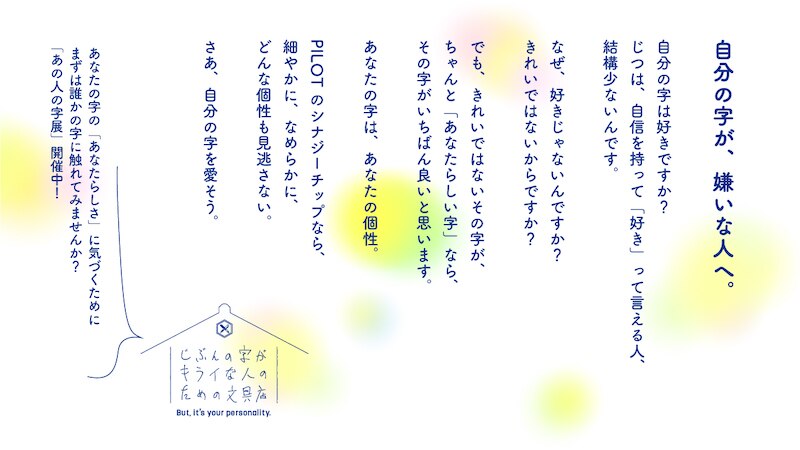 自分の字が、嫌いな人へ。
自分の字は好きですか?
じつは、自信を持って「好き」って言える人、
結構少ないんです。
なぜ、好きじゃないんですか?
きれいではないからですか?
でも、きれいではないその字が、
ちゃんと「あなたらしい字」なら、
その字がいちばん良いと思います。
あなたの字は、あなたの個性。
PILOTのシナジーチップなら、
細やかに、なめらかに、
どんな個性も見逃さない。
さあ、自分の字を愛そう。
あなたの字の「あなたらしさ」に気づくために
まずは誰かの字に触れてみませんか?
「あの人の字展」開催中!
じぶんの字が
キライな人の
ための文具店
But, it's your personality.